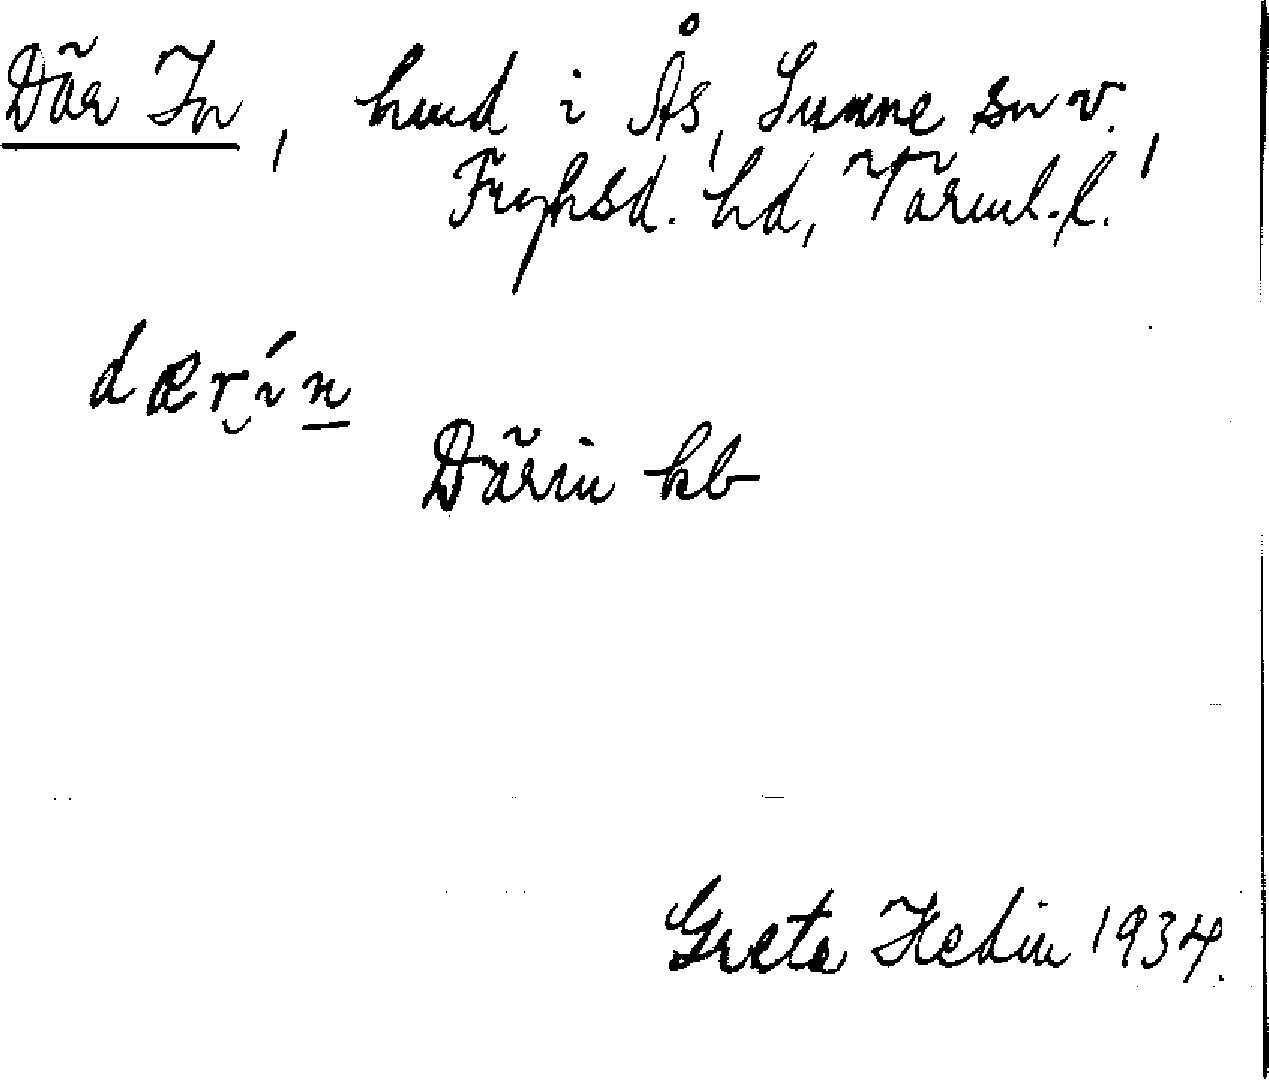 Där In, hmd i Ås, Sunne sn v.,
Fryksd. hd, Värml. l.
dærín
Därin kb
Greta Hedin 1934.